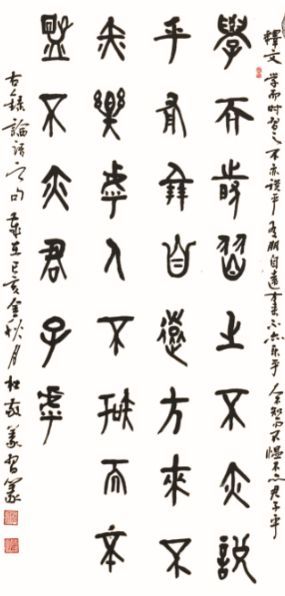 釋文 學而时習之 不亦說乎 有朋自遠方来 不亦乐乎 人不知而不愠 不亦君子乎
學而時習之不亦說
乎有朋自遠方來不
亦樂乎人不知而不
慍不亦君子乎
古錄論語之句 歲在己亥金秋月 杜義習篆